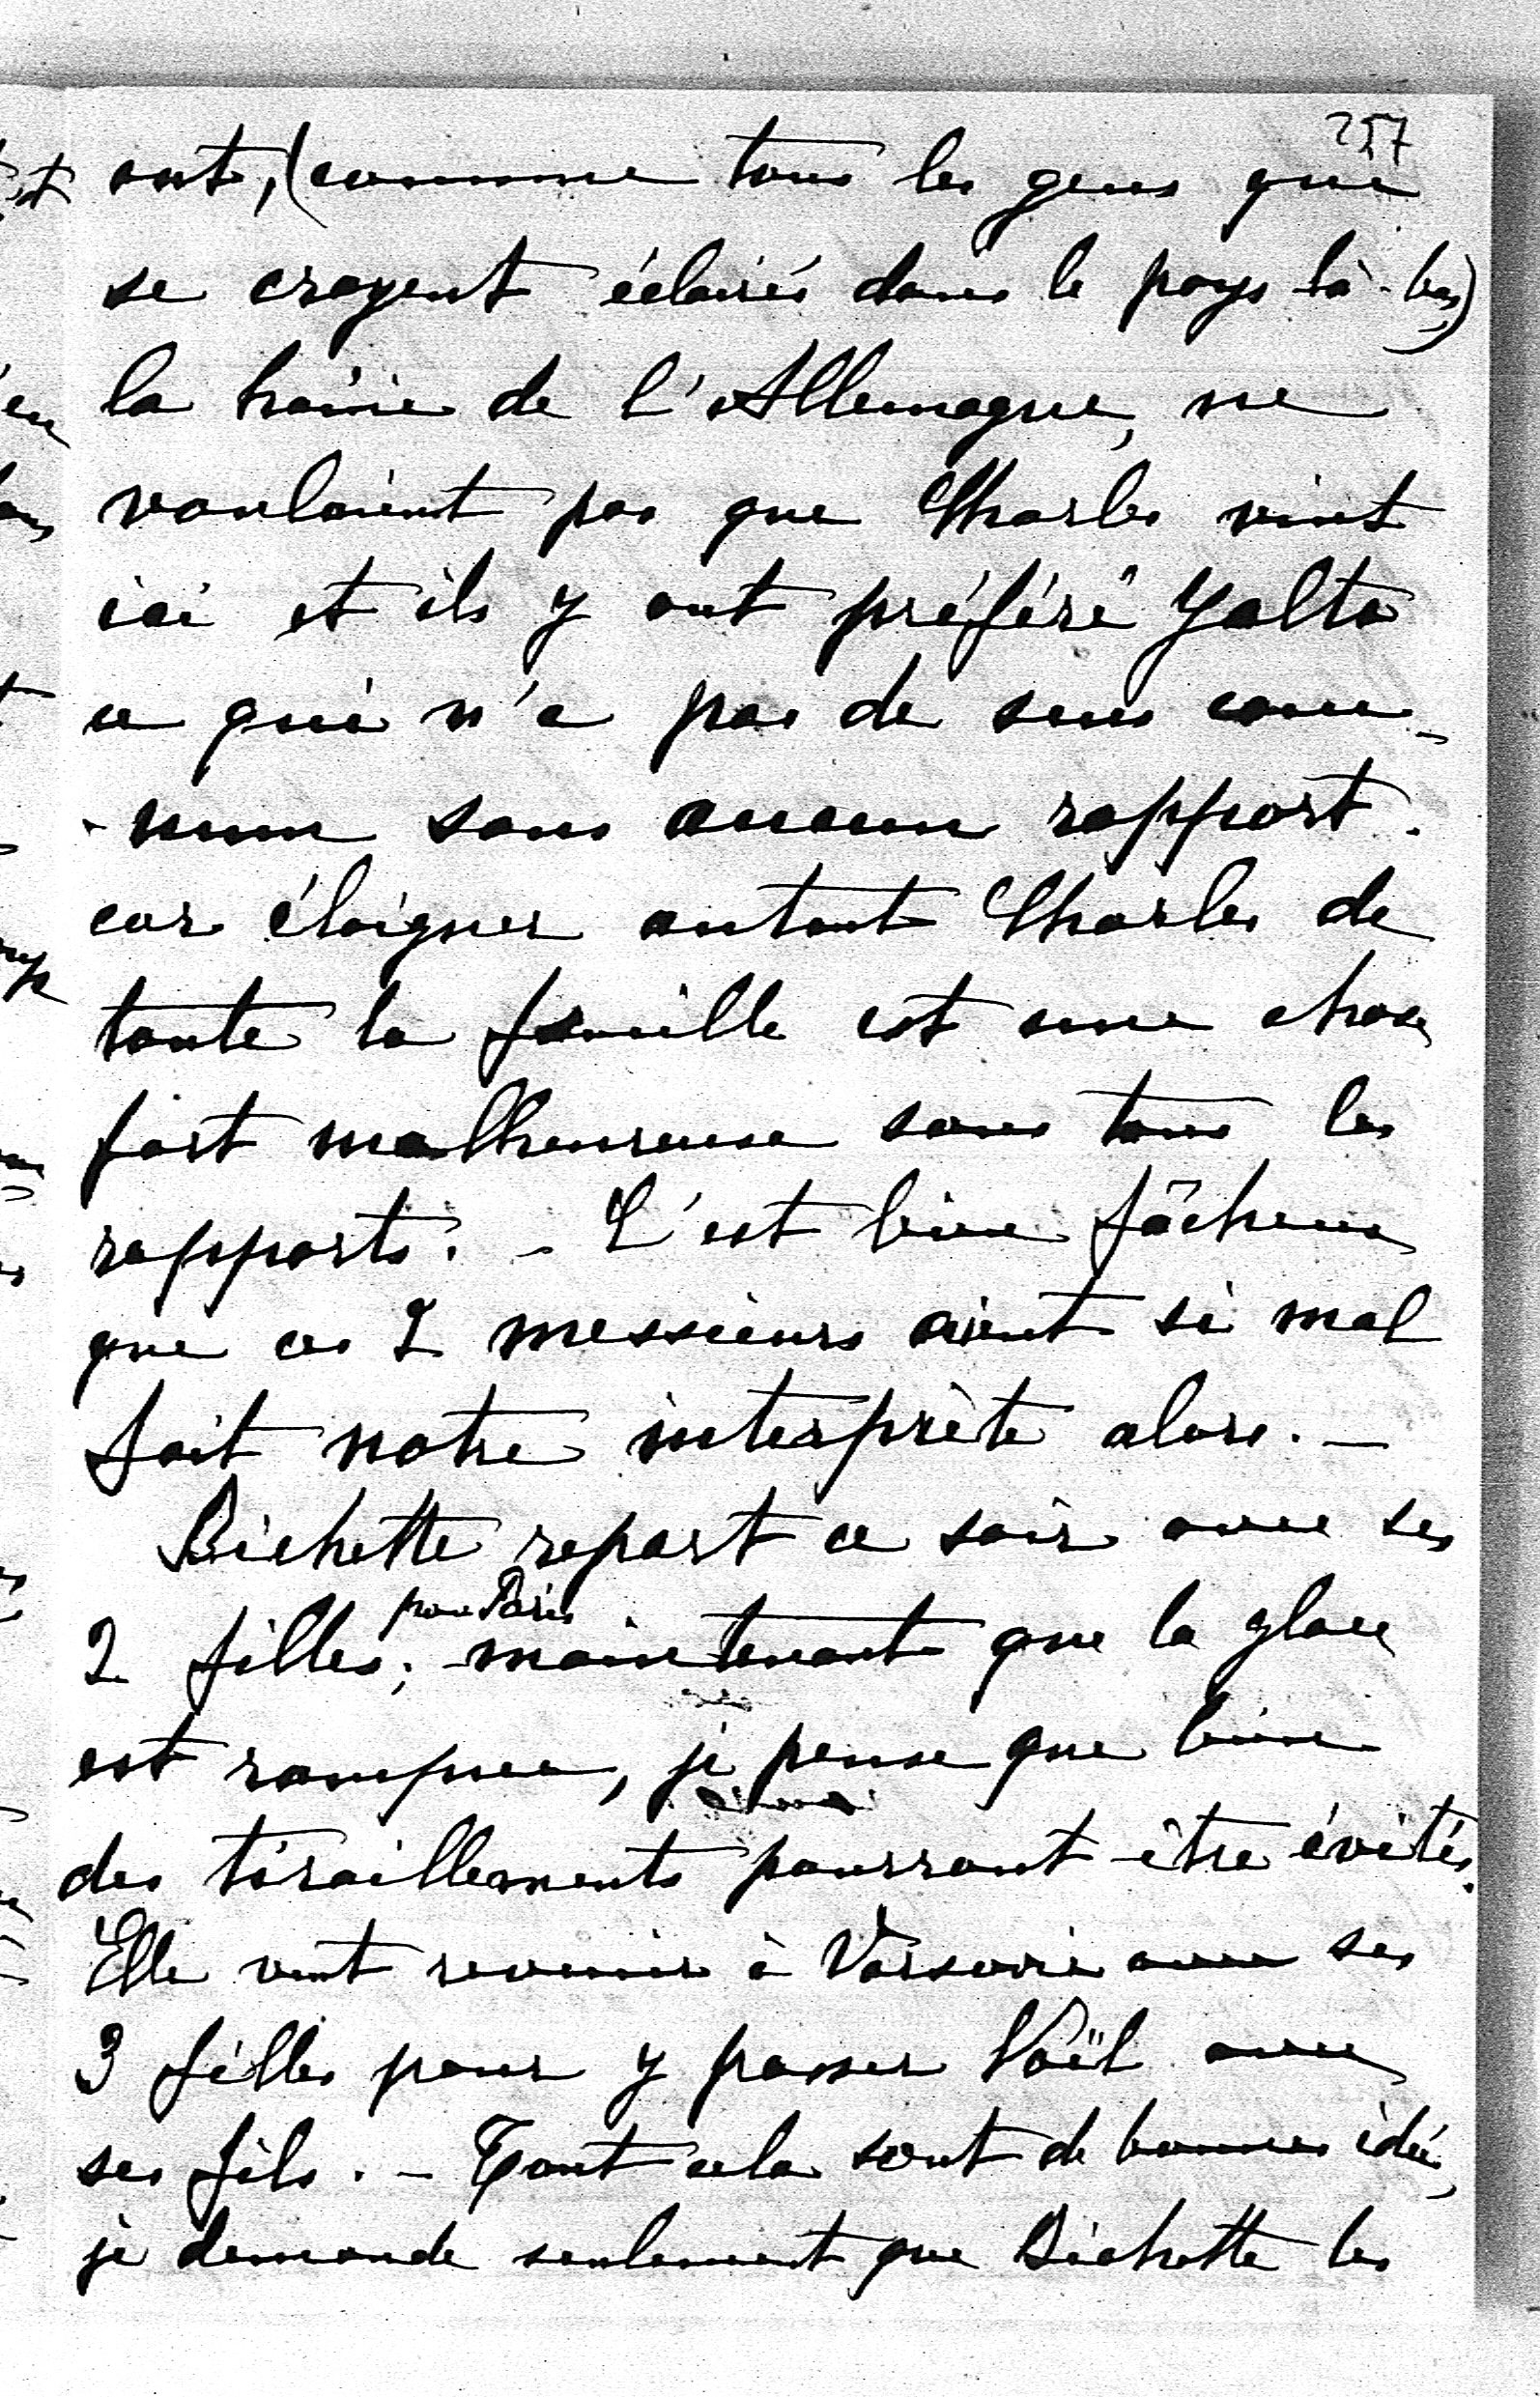 257
ont, (comme tous les gens qui
se croyent éclairés dans le pays là-bas)
la haine de l'Allemagne, ne
voulaient pas que Charles vint
ici et ils y ont préféré Yalta
ce qui n'a pas de sens com-
-mun sous aucun rapport.
car éloigner autant Charles de
toute la famille est une chose
fort malheureuse sous tous les
rapports. - C'est bien fâcheux
que ces 2 messieurs aient si mal
fait notre interprète alors. -
Bichette repart ce soir avec ses
pour Paris
2 filles; maintenant que la glace
est rompue, je pense que bien
des tiraillements pourront être évités.
Elle veut revenir à Varsovie avec ses
3 filles pour y passer Noël avec
ses fils. - Tout cela sont de bonnes idées,
je demande seulement que Bichette les